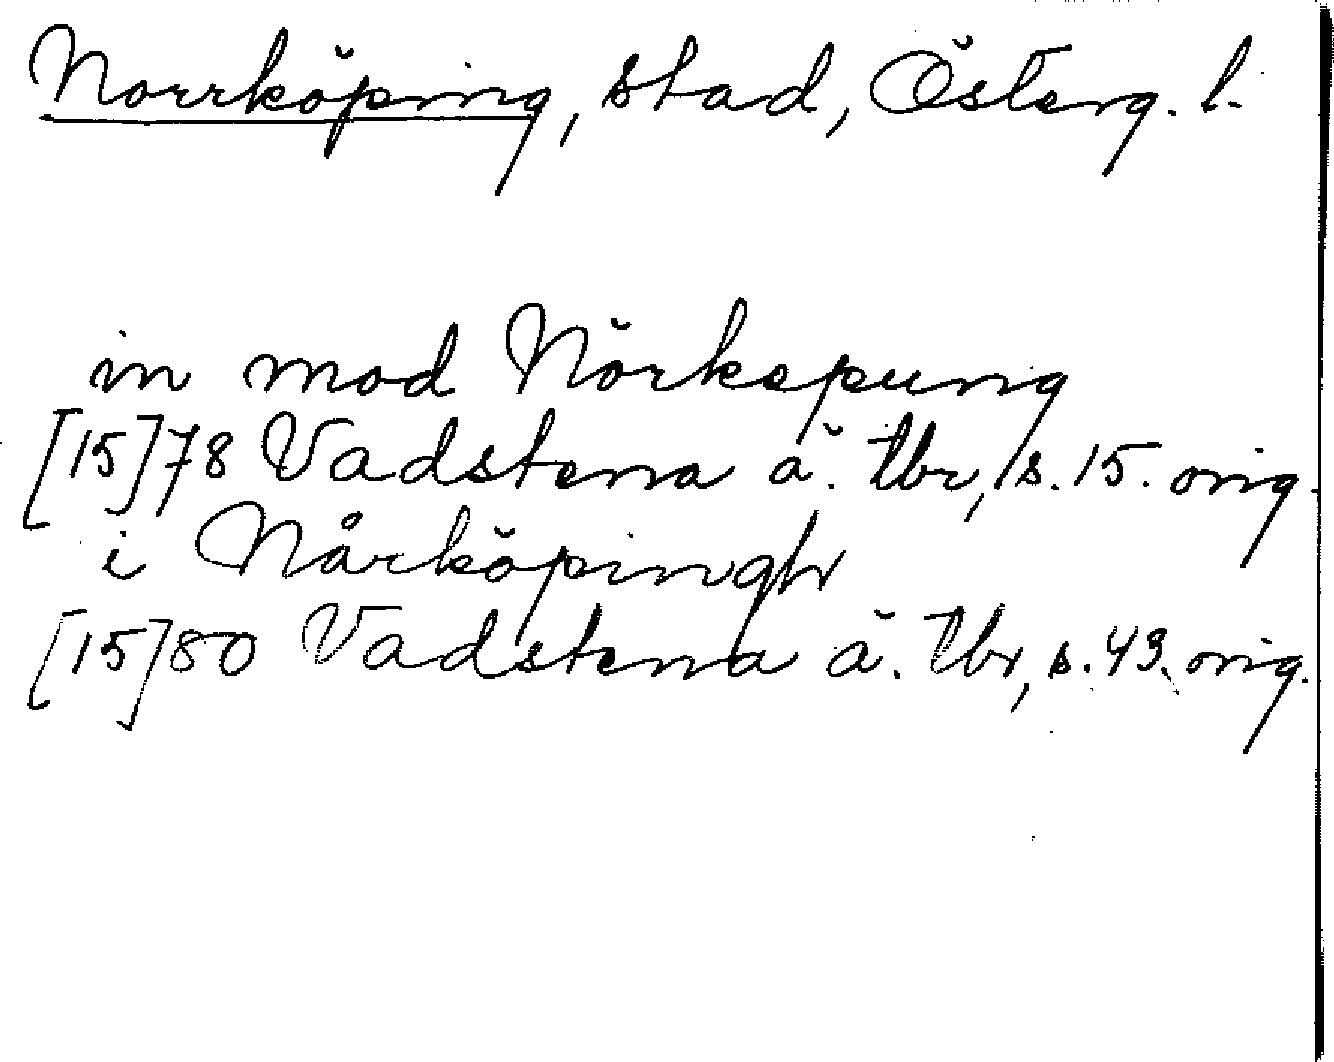 Norrköping, stad, Österg. l.
in mod Nörkepung
[15]78 Vadstena ä. tbr, s. 15. orig.
i Nårköpingh
[15]80 Vadstena ä. tbr, s. 43. orig.